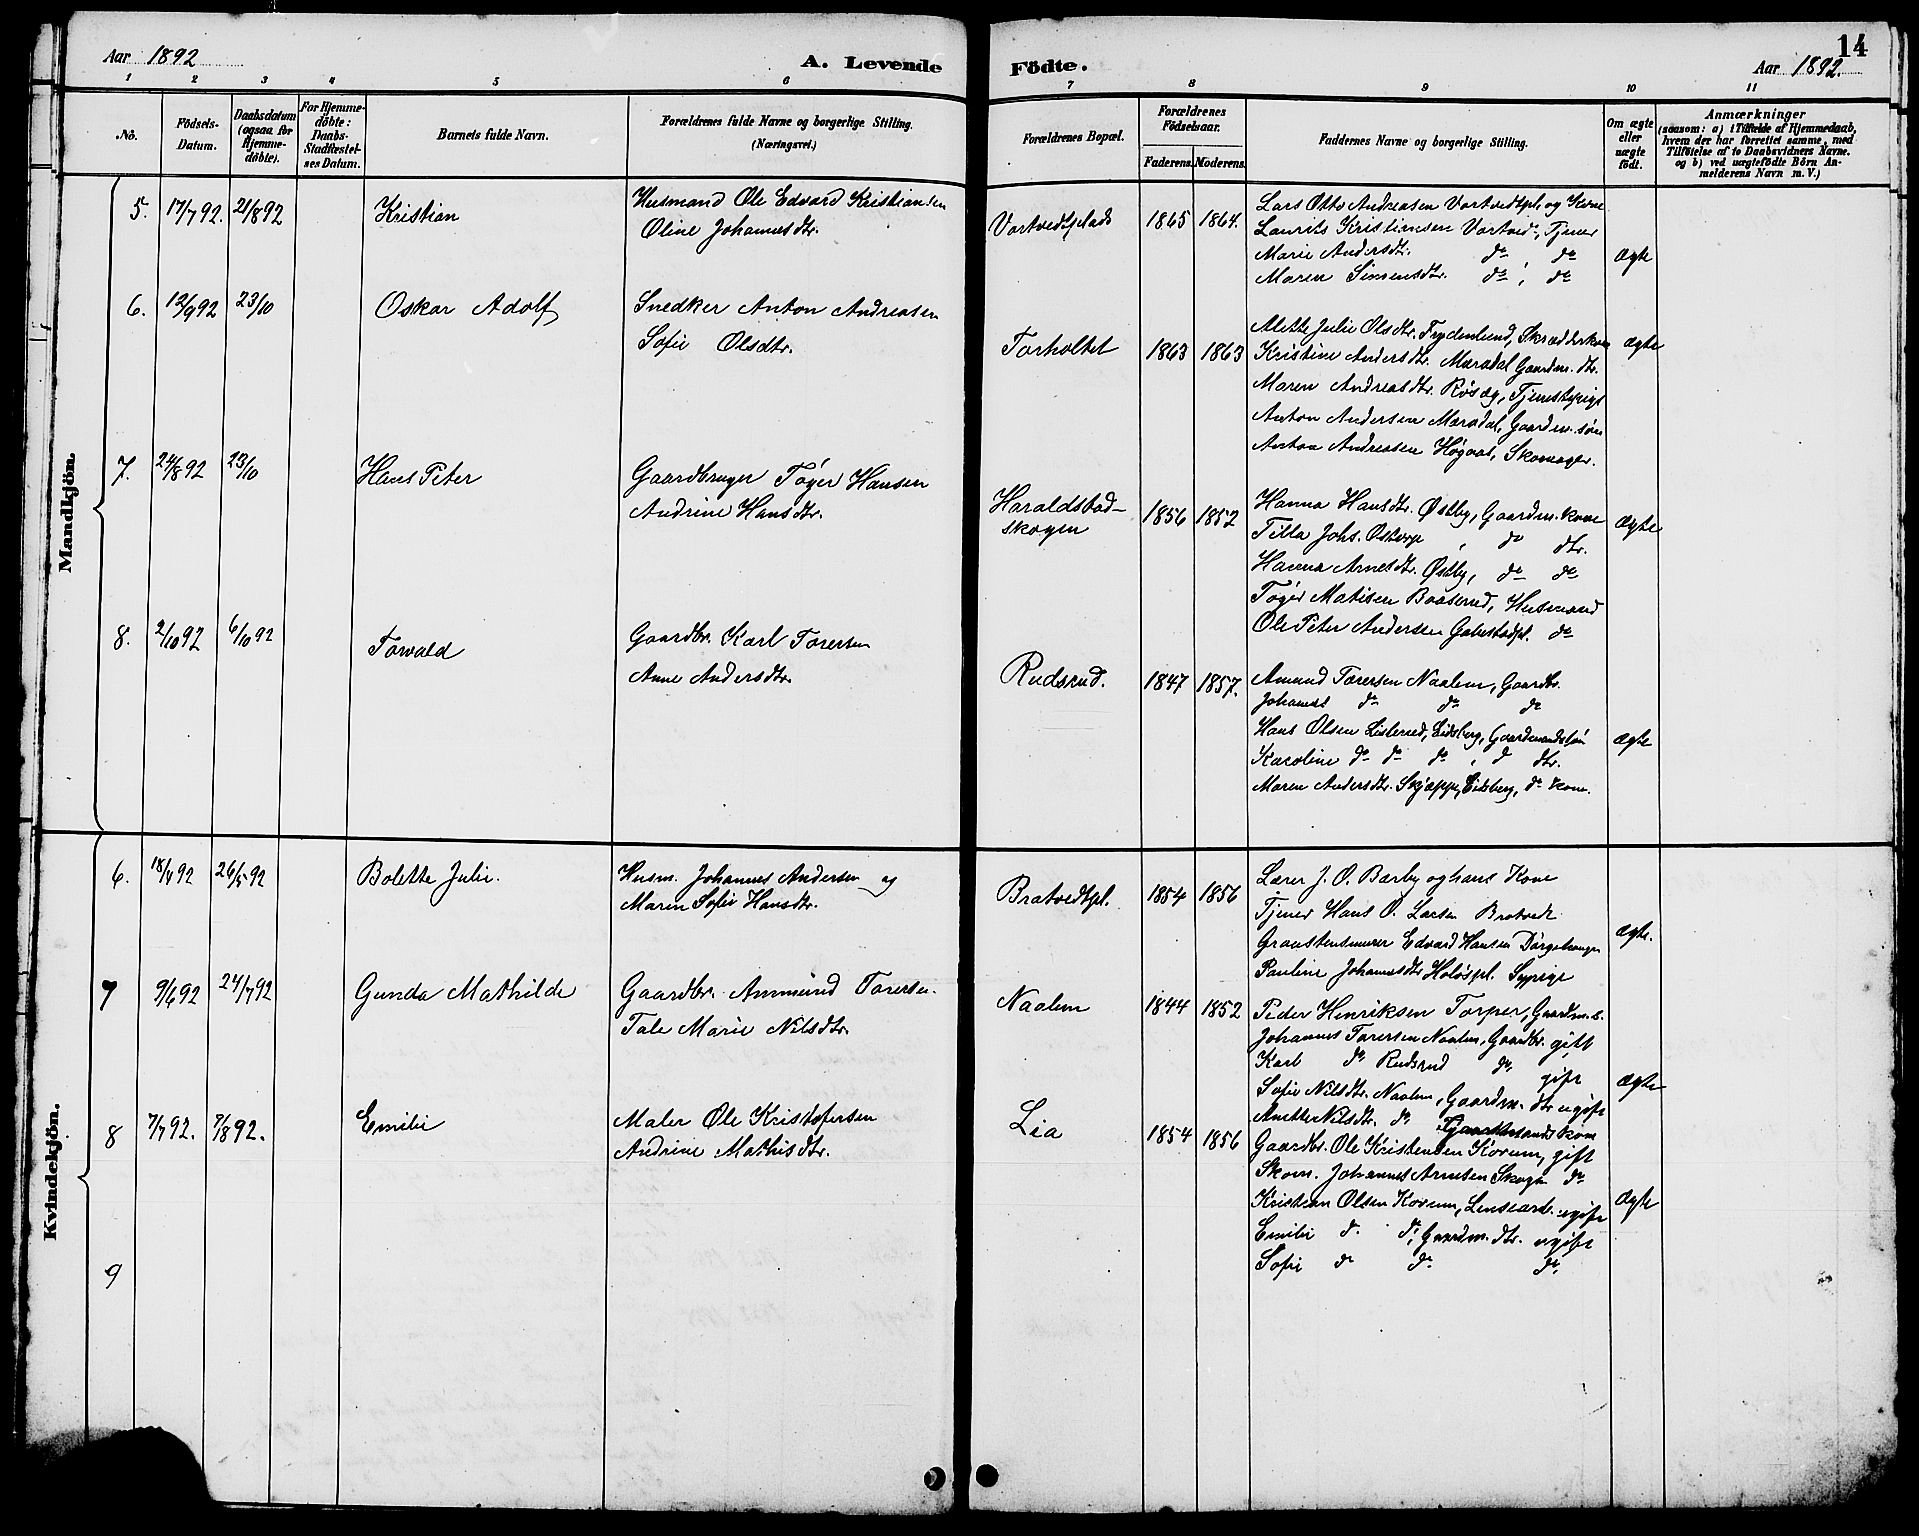 Aar 1892
A. Levende
Födte.
14
Aar 1892.
1 2 3 4 5 6 7 8 9 10 11
No.
Födsels-Datum.
Daabsdatum (ogsaa for Hjemme-döbte).
For Hjemme-döbte: Daabs-Stadfæstel-ses Datum.
Barnets fulde Navn.
Forældrenes fulde Navne og borgerlige Stilling. (Næringsvei.)
Forældrenes Bopæl.
Forældrenes Födselsaar.
Faderens. Moderens.
Faddernes Navne og borgerlige Stilling.
Om ægte eller uægte födt.
Anmærkninger
(saasom: a) i Tilfælde af Hjemmedaab,
hvem der har forrettet samme, med
Tilföielse af to Daabsvidners Navne.
og b) ved uægtefödte Börn An-
melderens Navn m. V.)
Mandkjön.
5. 17/7 92. 21/8 92 Kristian
Husmand Ole Edvard Kristiansen
Oline Johannesdtr.
Vortvedtplads 1865 1864.
Lars Otto Andreasen Vortvedtpl. og Kone
Laurits Kristiansen Vortvid, Tjener
Marie Andersdtr. do do
Maren Simensdtr. do , do
Ægte
6. 12/9 92 23/10 Oskar Adolf
Snedker Anton Andreasen
Sofie Olsdtr.
Torholtet 1863 1863
Alette Julie Olsdtr. Frydenlund, Skrædderkone
Kristine Andersdtr. Mæradal Gaardm. dtr.
Maren Andreasdtr. Røsæg, Tjenestepige
Anton Andersen Mæradal, Gaardm. søn
Anton Andreasen Høgaas, Skomager.
ægte
7. 24/8 92 23/10 Hans Peter
Gaardbruger Tøger Hansen
Andrine Hansdtr.
Haraldstad-
skogen 1856 1852
Hanna Hansdtr. Østby, Gaardm. kone
Tilla Johs. Ostorp , do dtr.
Hanna Arnesdtr. Østby, do do
Tøger Matisen Baaserud, Husmand
Ole Peter Andersen Gabestadpl. do
Ægte
8. 2/10 92 6/10 92 Torvald
Gaardbr. Karl Torersen
Anne Andersdtr.
Rudsrud. 1847 1857.
Amund Torersen Naalem, Gaardbr.
Johannes do do do
Hans Olsen Listerud, Eidsberg, Gaardmandsøn
Karoline do do do , d dtr.
Maren Andersdtr. Skjæppe, Eidsberg, do kone.
Ægte
Kvindekjön.
6. 18/4 92 26/5 92 Bolette Julie.
Husm. Johannes Andersen og
Maren Sofie Hansdtr.
Bratvedtpl. 1854 1856
Lærer J. O. Bærby og hans Kone
Tjener Hans O. Larsen Bratvedt
Graastensmurer Edvard Hansen
Pauline Johannesdtr Holøspl. Sypige
Ægte.
7 9/6 92 24/7 92 Gunda Mathilde
Gaardbr. Ammund Torersen.
Tale Marie Nilsdtr.
Naalem 1844 1852
Peder Henriksen Torper, Gaardm. s.
Johannes Torersen Naalem, Gaardbr. gift
Karl do Rudsrud do, gift
Sofie Nilsdtr. Naalem, Gaardm. dtr ugift
Anette Nilsdtr. do Gaardmands kone
Ægte
8 7/7 92. 7/8 92. Emilie
Maler Ole Kristofersen
Andrine Mathisdtr.
Lia 1854 1856
Gaardbr. Ole Kristensen Korum, gift
Skom. Johannes Arnesen Skogen do
Kristian Olsen Korum, ugift
Emilie d. do, Gaardm. dtr. ugift
Sofie do do do,
Ægte
9